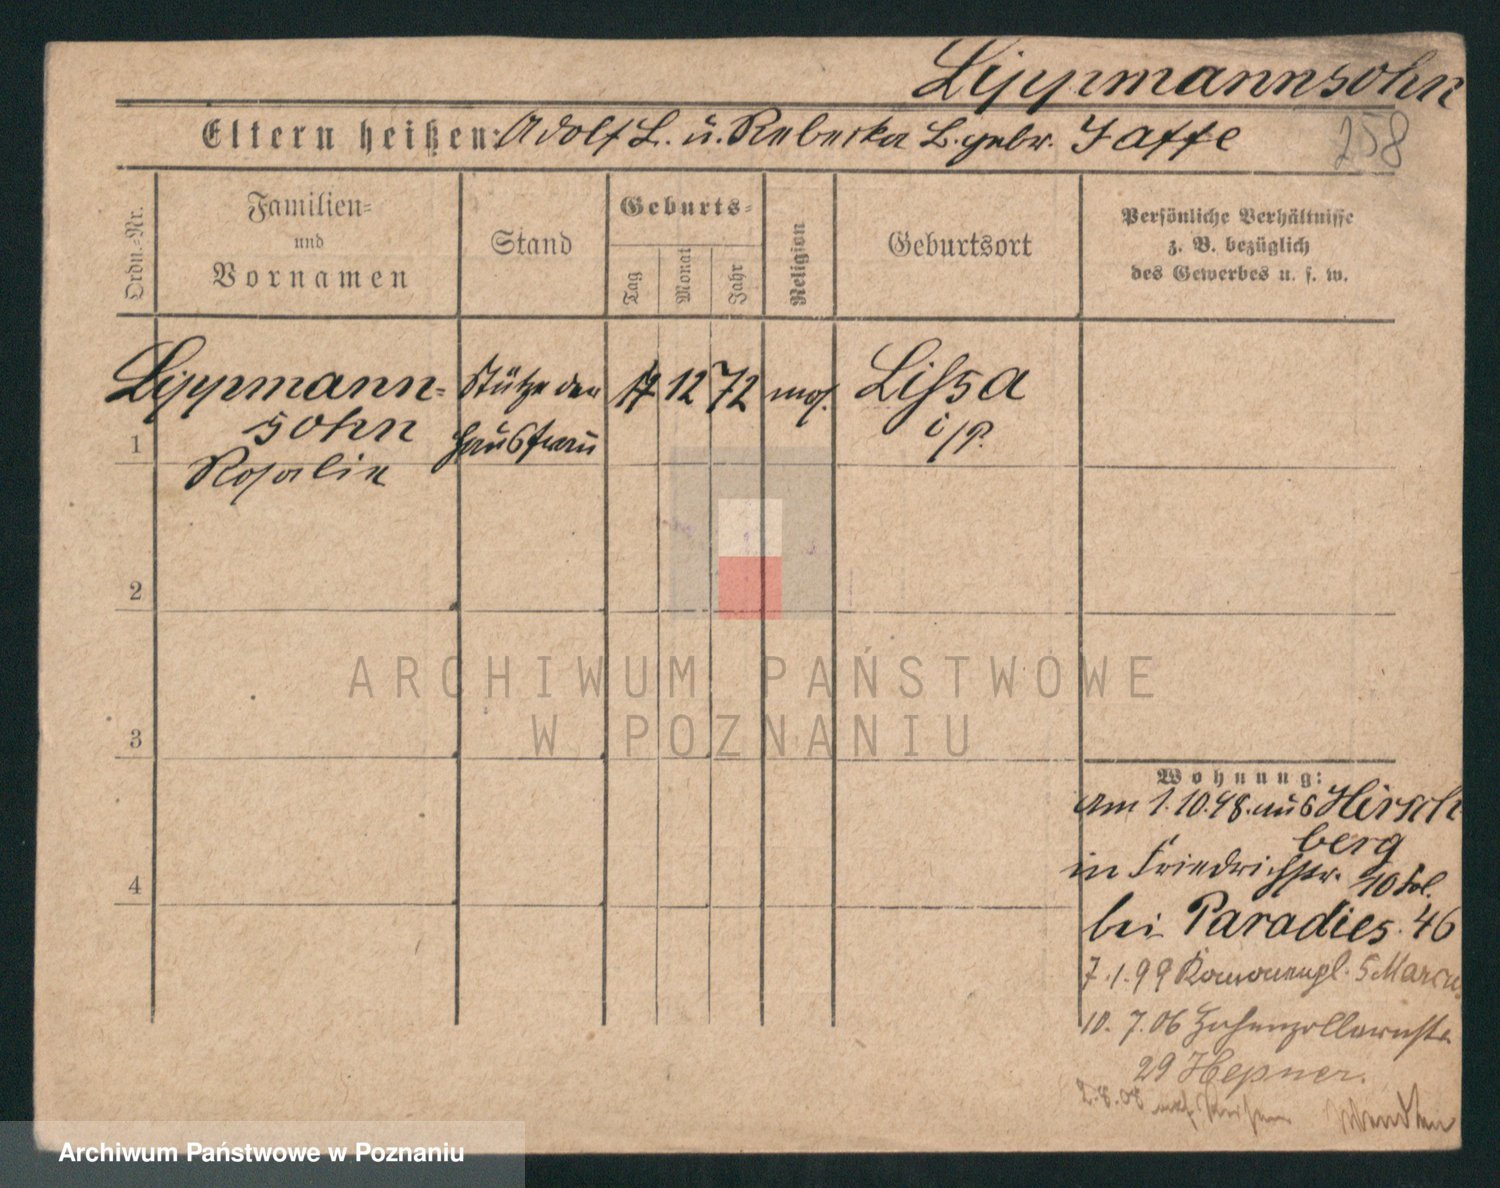 Lippmannsohn
Eltern heißen: Adolf L. u. Rebecka L. gebr. Jaffe
258
Ordn.-Nr.
Familien-
und
Vornamen
Stand
Geburts-
Tag
Monat
Jahr
Religion
Geburtsort
Persönliche Verhältnisse
z. B. bezüglich
des Gewerbes u. s. w.
1
Lippmann-
sohn
Rosalie
Stütze der
Hausfrau
12 72
mos.
Lissa
i/P.
2
3
4
Wohnung:
Am 1.10.98. aus Hirsch
berg
in Friedrichstr. 10
bei Paradies. 46
7.1.99 5 Marcus
10.7.06 Hohenzollernstr.
29 Hepner.
2.8.08 auf Reisen
ARCHIWUM PAŃSTWOWE
W POZNANIU
Archiwum Państwowe w Poznaniu